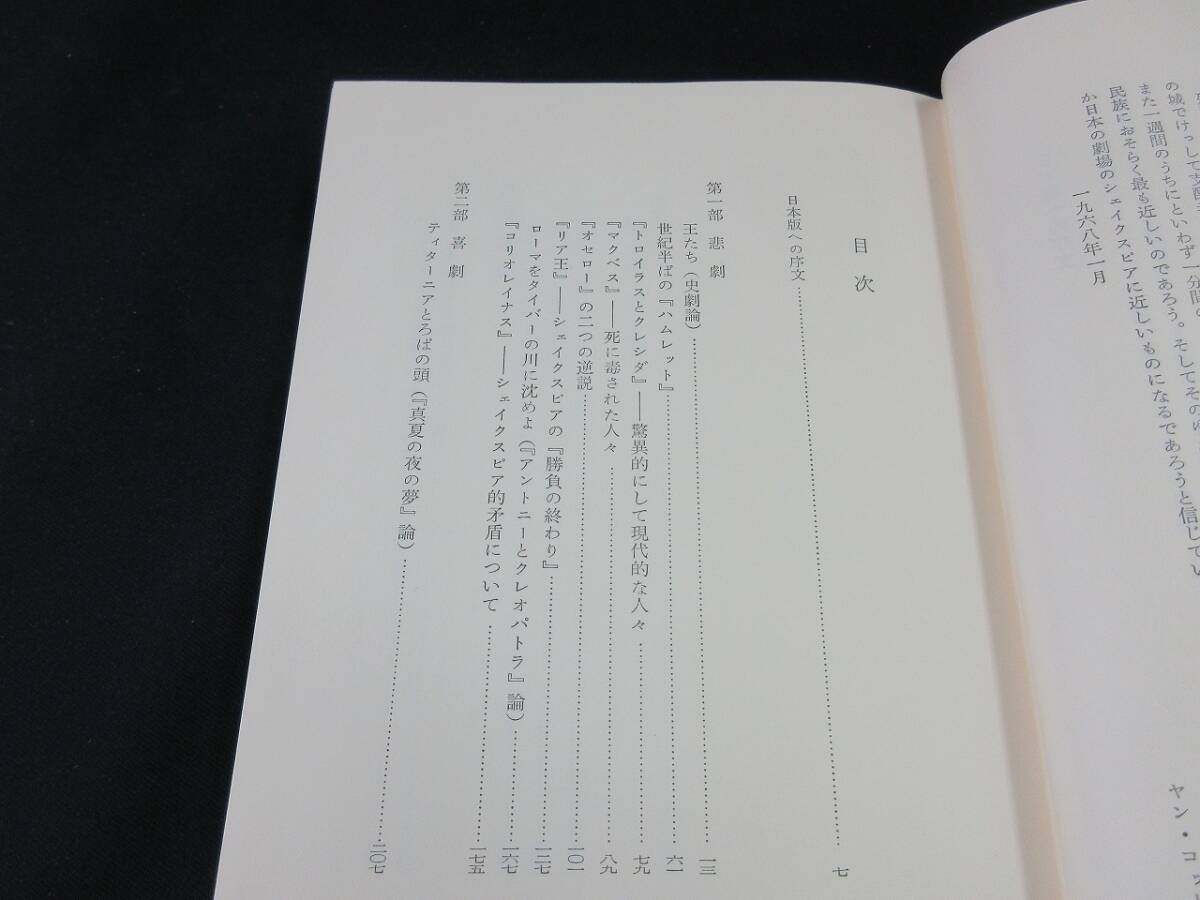 の城でけっして支配
また一週間のうちにといわず一分間の
民族におそらく最も近しいのであろう。そしてその
か日本の劇場のシェイクスピアに近しいものになるであろうと信じてい
一九六八年一月
ヤン・コ
目次
日本版への序文……七
第一部 悲劇
王たち（史劇論）……一三
世紀半ばの『ハムレット』……六一
『トロイラスとクレシダ』——驚異的にして現代的な人々……七九
『マクベス』——死に毒された人々……八九
『オセロー』の二つの逆説……一〇一
『リア王』——シェイクスピアの『勝負の終わり』……一二七
ローマをタイバーの川に沈めよ（『アントニーとクレオパトラ』論）……一六七
『コリオレイナス』——シェイクスピア的矛盾について……一七五
第二部 喜劇
ティターニアとろばの頭（『真夏の夜の夢』論）……二〇七